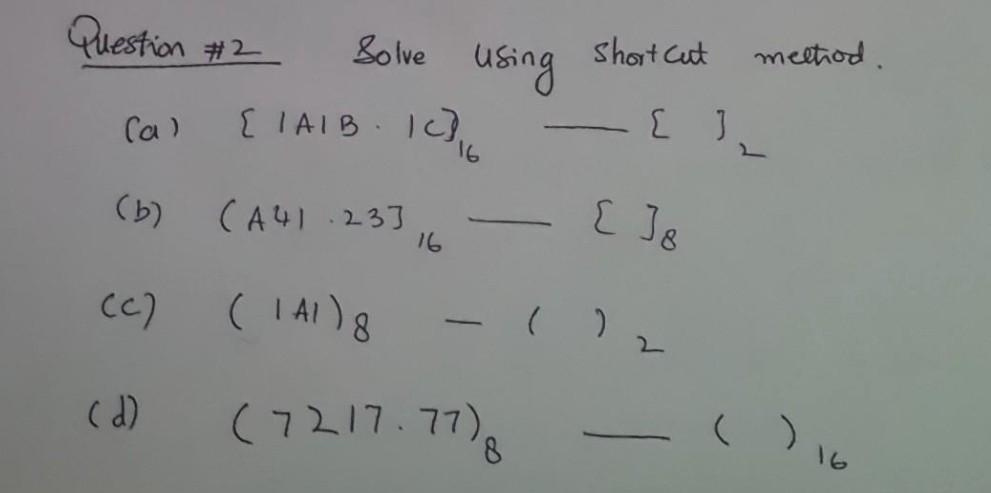 Question #2 Solve using shortcut method.
(a) [1A1B.1C]16 — [ ]2
(b) (A41.23]16 — [ ]8
(c) (1A1)8 — ( )2
(d) (7217.77)8 — ( )16